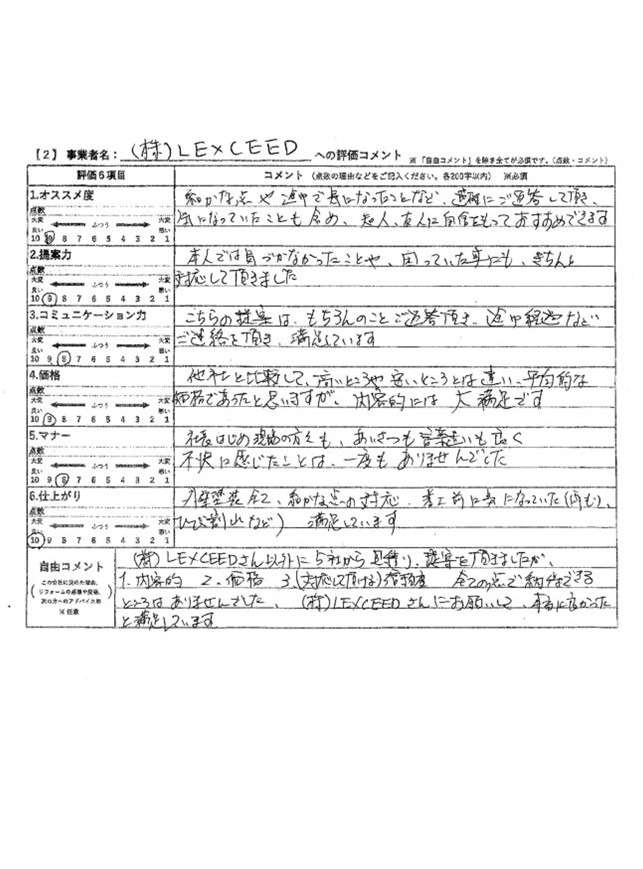 【2】 事業者名： (株)LEXCEED への評価コメント ※「自由コメント」を除き全てが必須です。（点数・コメント）
評価6項目 コメント （点数の理由などをご記入ください。各200字以内） ※必須
1.オススメ度
点数
大変良い ふつう 大変悪い
10 9 8 7 6 5 4 3 2 1
細かな点や途中で気になったことなど、適確にご返答して頂き、
気になっていたことも含め、知人、友人に自信をもっておすすめできます
2.提案力
点数
大変良い ふつう 大変悪い
10 9 8 7 6 5 4 3 2 1
本人では気づかなかったことや、困っていた事にも、きちんと
対応して頂きました
3.コミュニケーション力
点数
大変良い ふつう 大変悪い
10 9 8 7 6 5 4 3 2 1
こちらの提案は、もちろんのことご返答頂き、途中経過など
ご連絡を頂き、満足しています
4.価格
点数
大変良い ふつう 大変悪い
10 9 8 7 6 5 4 3 2 1
他社と比較して、高いところや安いところとは違い、平均的な
価格であったと思いますが、内容的には 大満足です
5.マナー
点数
大変良い ふつう 大変悪い
10 9 8 7 6 5 4 3 2 1
社長はじめ現場の方々も、あいさつも言葉遣いも良く
不快に感じたことは、一度もありませんでした
6.仕上がり
点数
大変良い ふつう 大変悪い
10 9 8 7 6 5 4 3 2 1
外壁塗装全て、細かな点の対応、着工前に気になっていた
ひび割れなど） 満足しています
自由コメント
この会社に決めた理由、
リフォームの感想や反省、
次の方へのアドバイス等
※任意
(株)LEXCEEDさん以外に5社から見積り、提案を頂きましたが、
1.内容的 2.価格 3.(対応して頂ける) 全ての点で納得できる
ところはありませんでした、(株)LEXCEEDさんにお願いして、本当に良かった
と満足しています